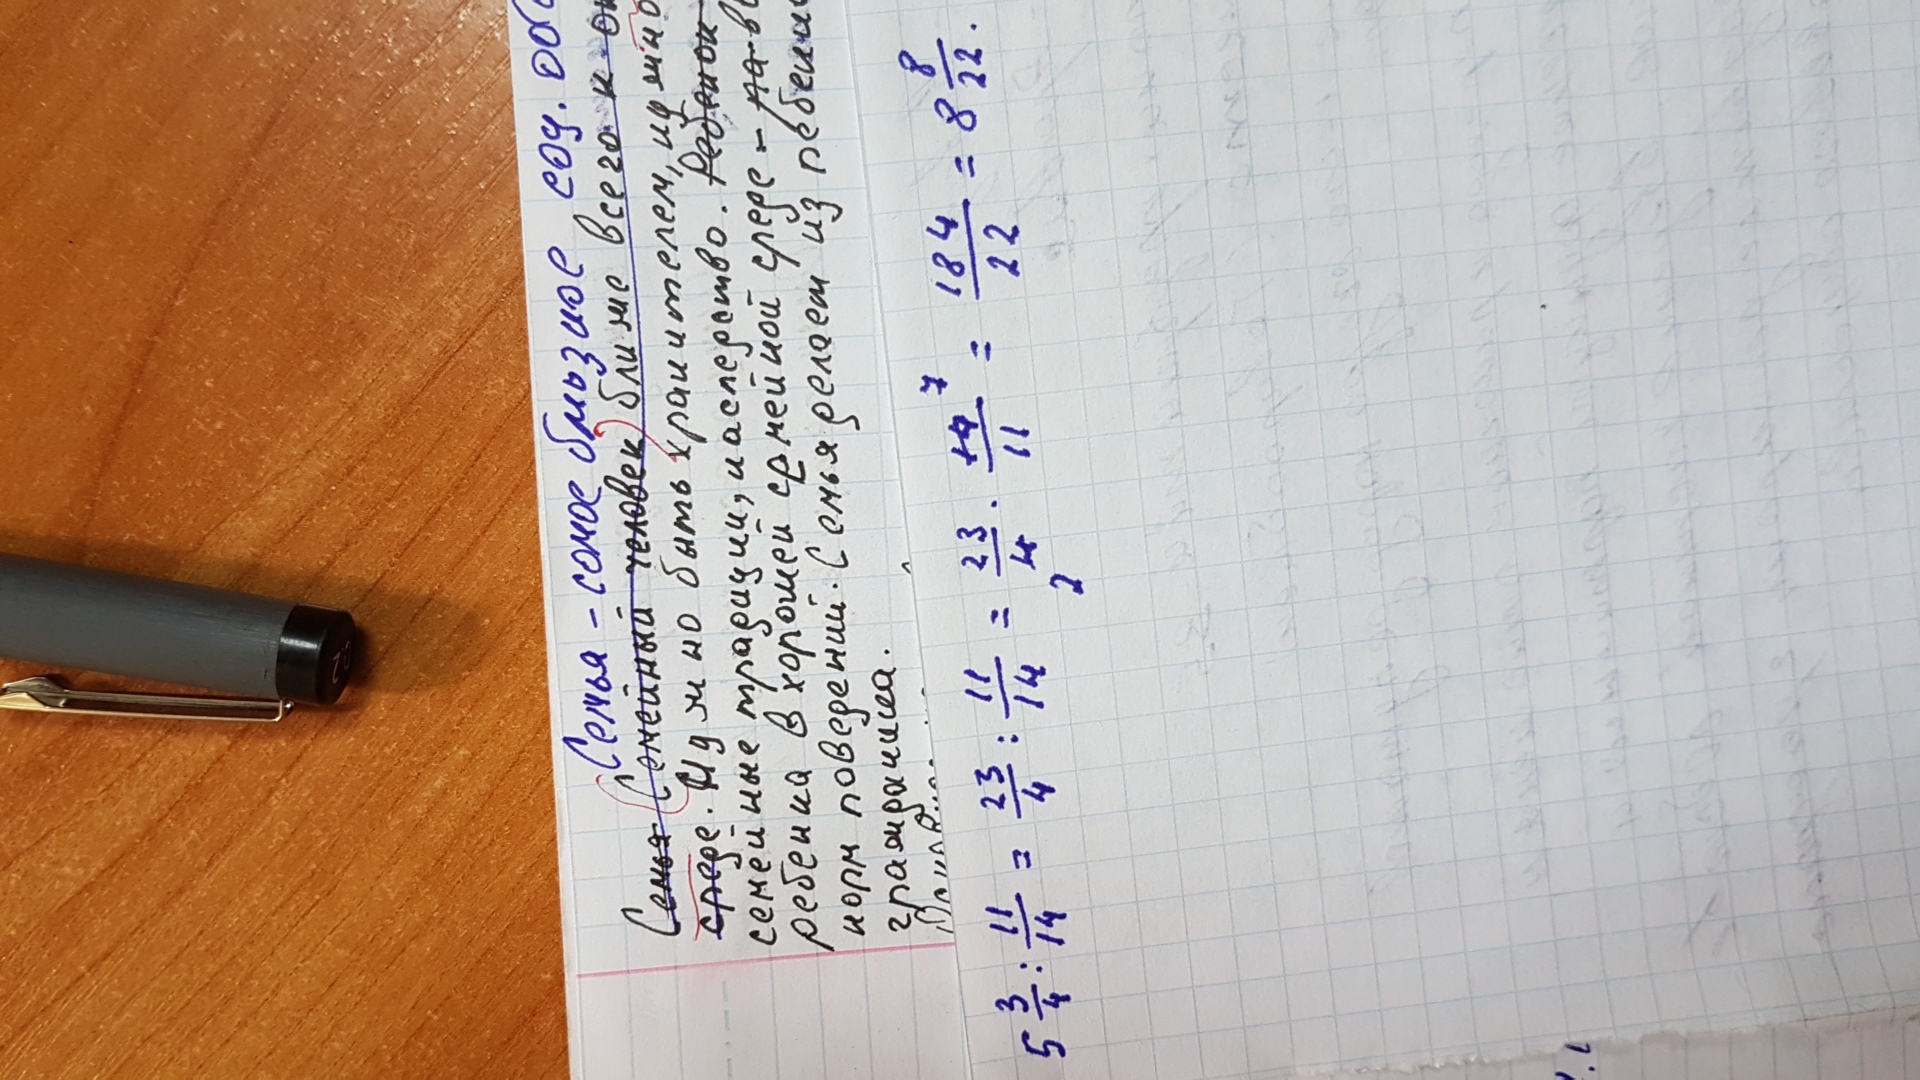 Семья - самое близкое соц.
Семья Семейный человек ближе всего к
среде. Нужно быть хранителем,
семейные традиции, наследство. Ребенок
ребенка в хорошей семейной среде -
норм поведений. Семья делает из ребенка
гражданина.
5 3/4 : 11/14 = 23/4 : 11/14 = 23/4 2 · 14 7/11 = 184/22 = 8 8/22.